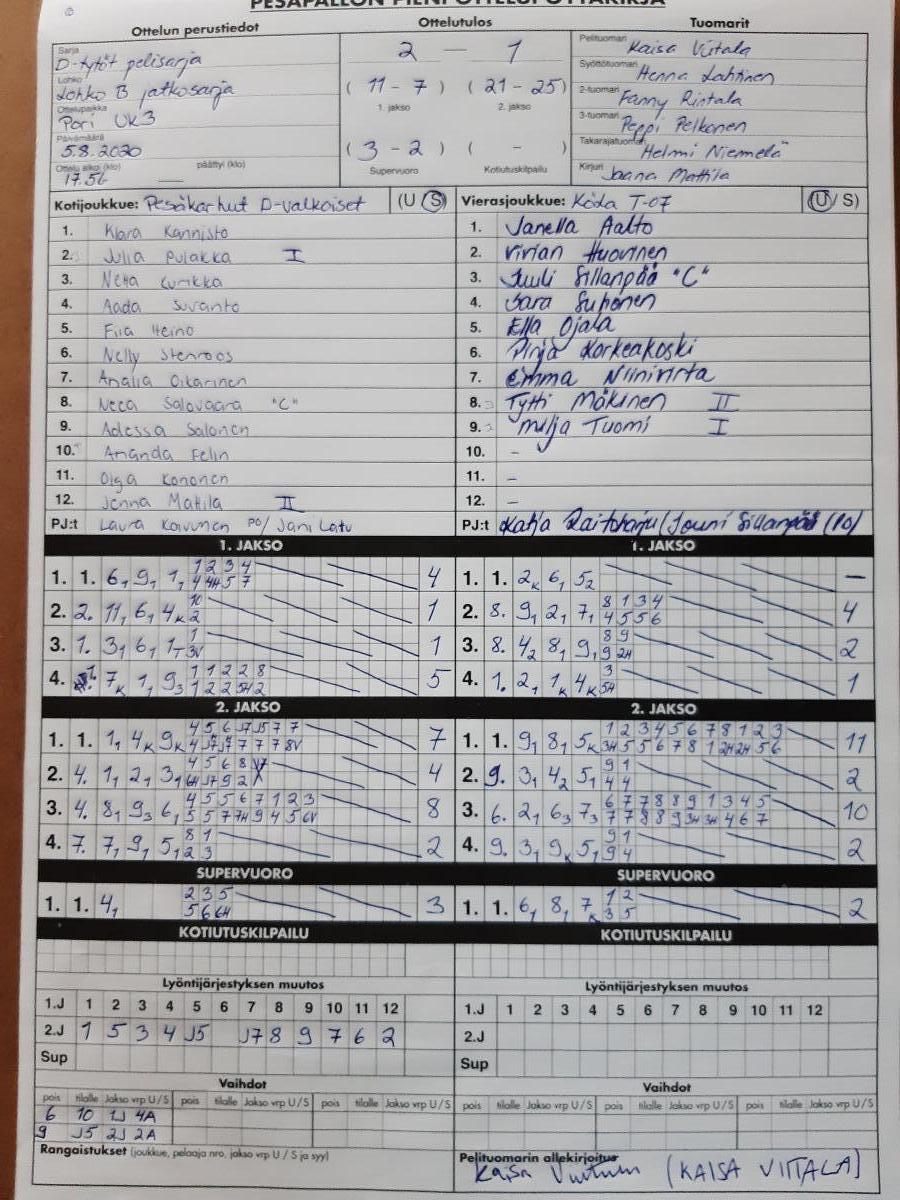 PESÄPALLON PIENI OTTELUPÖYTÄKIRJA
Ottelun perustiedot Ottelutulos Tuomarit
Sarja D-tytöt pelisarja
Lohko Lohko B jatkosarja
Ottelupaikka Pori UK3
Päivämäärä 5.8.2020
Ottelu alkoi (klo) 17.56 päättyi (klo) —
2 — 1
( 11 - 7 ) ( 21 - 25 )
1. jakso 2. jakso
( 3 - 2 ) ( - )
Supervuoro Kotiutuskilpailu
Pelituomari Kaisa Viitala
Syöttötuomari Henna Lahtinen
2-tuomari Fanny Rintala
3-tuomari Peppi Pelkonen
Takarajatuomari Helmi Niemelä
Kirjuri Jaana Mattila
Kotijoukkue: Pesäkarhut D-valkoiset (U S)
1. Klara Kannisto
2. Julia Pulakka I
3. Netta Kurikka
4. Aada Suvanto
5. Eiia Heino
6. Nelly Stenroos
7. Analia Oikarinen
8. Neea Salovaara "C"
9. Adessa Salonen
10. Amanda Felin
11. Olga Kononen
12. Jenna Mattila II
PJ:t Laura Koivunen PO/ Jani Latu
Vierasjoukkue: Köda T-07 (U/S)
1. Janella Aalto
2. Vivian Huovinen
3. Juuli Sillanpää "C"
4. Sara Suhonen
5. Ella Ojala
6. Pinja Korkeakoski
7. Emma Niinivirta
8. Tytti Mäkinen II
9. Milja Tuomi I
10. -
11. -
12. -
PJ:t Katja Raitoharju (Jouni Sillanpää (PO)
1. JAKSO 1. JAKSO
1. 1. 6, 9, 1, 1 2 3 4 4
4 4H 5 7
2. 2. 11, 6, 4K 10 1
2
3. 1. 3, 6, 1T 1 1
3V
4. 7K 1, 93 1 1 2 2 8 5
1 2 2 5H 2
1. 1. 2K 6, 52 —
2. 8. 9, 2, 7, 8 1 3 4 4
4 5 5 6
3. 8. 42 8, 9, 8 9 2
9 2H
4. 1. 2, 1K 4K 3 1
5H
2. JAKSO 2. JAKSO
1. 1. 1, 4K 9K 4 5 6 J7 J5 7 7 7
4 J7 J7 7 7 7 8V
2. 4. 1, 2, 3, 4 5 6 8 4
6H J7 9 2
3. 4. 8, 93 6, 4 5 5 6 7 1 2 3 8
5 5 7 7H 9 4 5 6V
4. 7. 7, 9, 5, 8 1 2
2 3
1. 1. 9, 8, 5K 1 2 3 4 5 6 7 8 1 2 3 11
3H 5 5 6 7 8 1 2H 2H 5 6
2. 9. 3, 42 5, 9 1 2
4 4
3. 6. 2, 63 73 6 7 7 8 8 9 1 3 4 5 10
7 7 8 8 9 3H 3H 4 6 7
4. 9. 3, 9K 5, 9 1 2
9 4
SUPERVUORO SUPERVUORO
1. 1. 4, 2 3 5 3
5 6 6H
1. 1. 6, 8, 7K 1 2 2
3 5
KOTIUTUSKILPAILU KOTIUTUSKILPAILU
Lyöntijärjestyksen muutos Lyöntijärjestyksen muutos
1.J 1 2 3 4 5 6 7 8 9 10 11 12
2.J 1 5 3 4 J5 J7 8 9 7 6 2
Sup
1.J 1 2 3 4 5 6 7 8 9 10 11 12
2.J
Sup
Vaihdot Vaihdot
pois tilalle Jakso vrp U/S pois tilalle Jakso vrp U/S pois tilalle Jakso vrp U/S
6 10 1J 4A
9 J5 2J 2A
pois tilalle Jakso vrp U/S pois tilalle Jakso vrp U/S pois tilalle Jakso vrp U/S
Rangaistukset (joukkue, pelaaja nro, jakso vrp U / S ja syy)
Pelituomarin allekirjoitus
Kaisa Viitala (KAISA VIITALA)